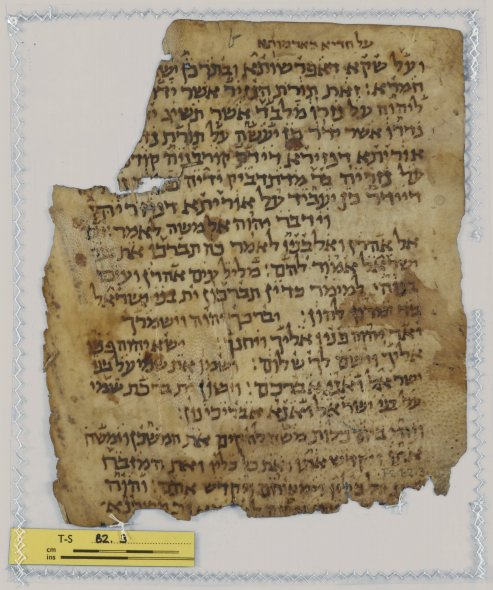 על חדיא דארמותא
ועל שקא דאפרשותא ובתרכן ישתי
חמרא: זאת תורת הנזיר אשר ידר
ליהוה על נזרו מלבד אשר תשיג
נדרו אשר ידר כן יעשה על תורת
אוריתא דנזירא דיידר קורבניה קודם
על נזריה בר מדתדביק ידיה
דיידר כן יעביד על אוריתא דנזריה
וידבר יהוה אל משה לאמר
אל אהרן ואל בניו לאמר כה תברכו את
ישראל אמור להם: מליל עים אהרן ועים
בנוהי למימר כדין תברכון ית בני ישראל
להון: יברכך יהוה וישמרך
יאר יהוה פניו אליך ויחנך ישא יהוה פניו
אליך וישם לך שלום: ושמו את שמי על בני
ישראל ואני אברכם: וישוון ית ברכת שמי
על בני ישראל ואנא אבריכינון:
ויהי ביום כלות משה להקים את המשכן וימשח
אתו ויקדש אתו ואת כל כליו ואת המזבח
ואת כל כליו וימשחם ויקדש אתם: והוה
T-S B2. 3
cm
ins